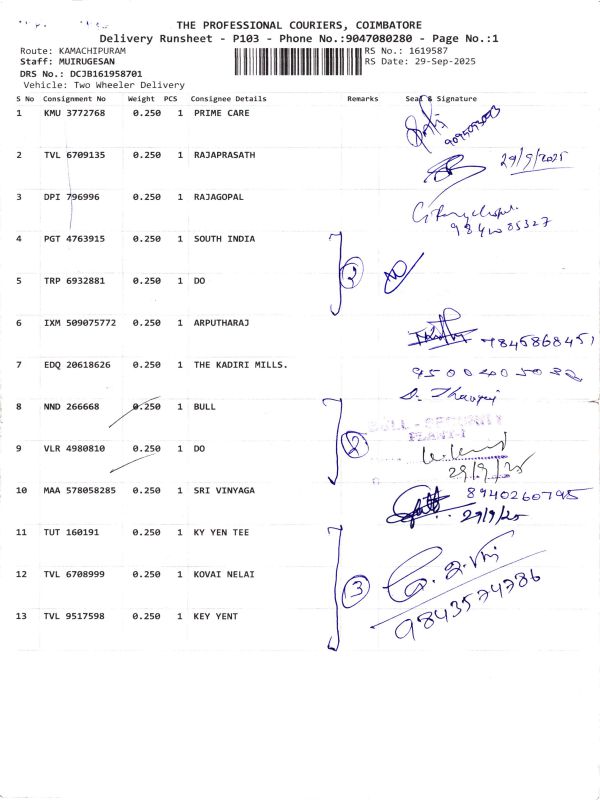 THE PROFESSIONAL COURIERS, COIMBATORE
Delivery Runsheet - P103 - Phone No.:9047080280 - Page No.:1
Route: KAMACHIPURAM RS No.: 1619587
Staff: MUIRUGESAN RS Date: 29-Sep-2025
DRS No.: DCJB161958701
Vehicle: Two Wheeler Delivery
S No Consignment No Weight PCS Consignee Details Remarks Seal & Signature
1 KMU 3772768 0.250 1 PRIME CARE
2 TVL 6709135 0.250 1 RAJAPRASATH 29/9/2025
3 DPI 796996 0.250 1 RAJAGOPAL
4 PGT 4763915 0.250 1 SOUTH INDIA
5 TRP 6932881 0.250 1 DO
6 IXM 509075772 0.250 1 ARPUTHARAJ 9845868451
7 EDQ 20618626 0.250 1 THE KADIRI MILLS.
8 NND 266668 0.250 1 BULL
BULL - SECURITY
PLANT-I
2
9 VLR 4980810 0.250 1 DO
29/9/25
10 MAA 578058285 0.250 1 SRI VINYAGA 8940260795
29/9/25
11 TUT 160191 0.250 1 KY YEN TEE
12 TVL 6708999 0.250 1 KOVAI NELAI 3
9843574786
13 TVL 9517598 0.250 1 KEY YENT